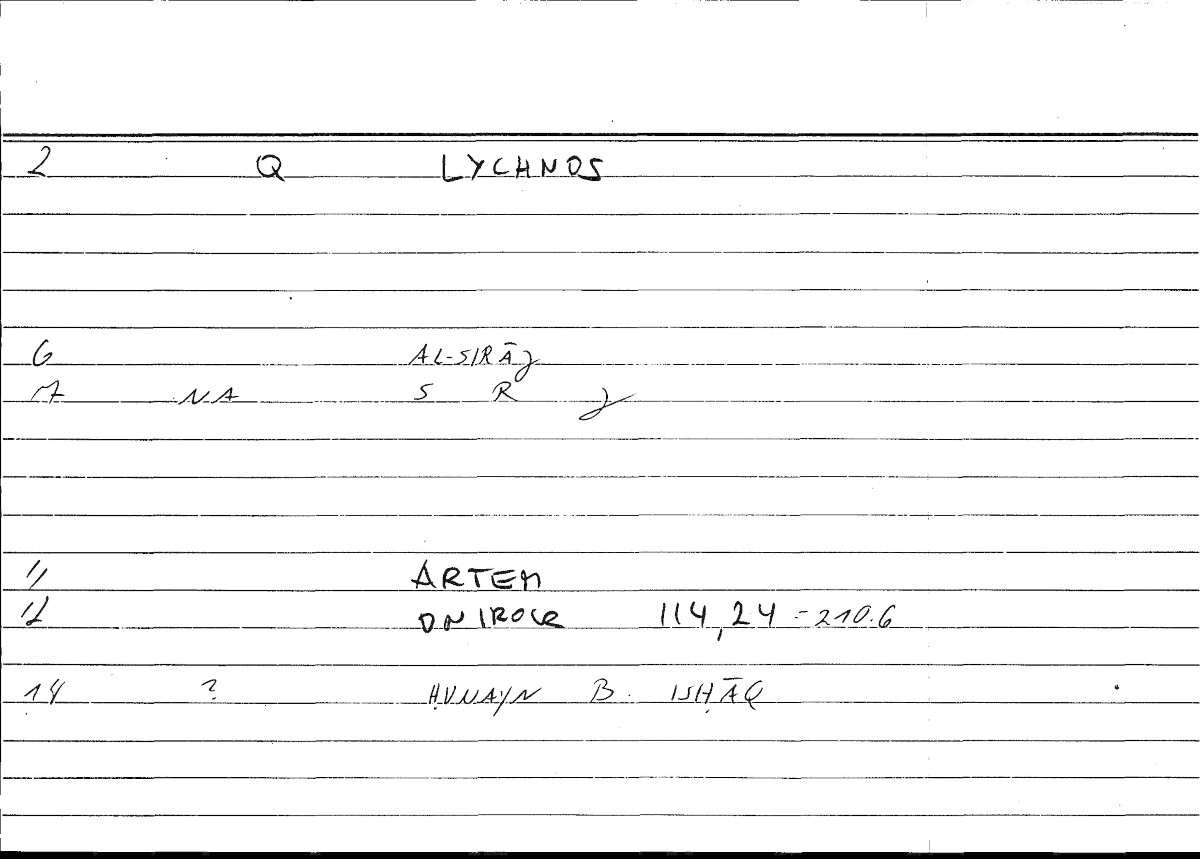 2 Q LYCHNOS
6 AL-SIRĀJ
7 NA S R J
11 ARTEM
12 ONIROCR 114,24 = 210.6
14 ? ḤUNAYN B. ISḤĀQ